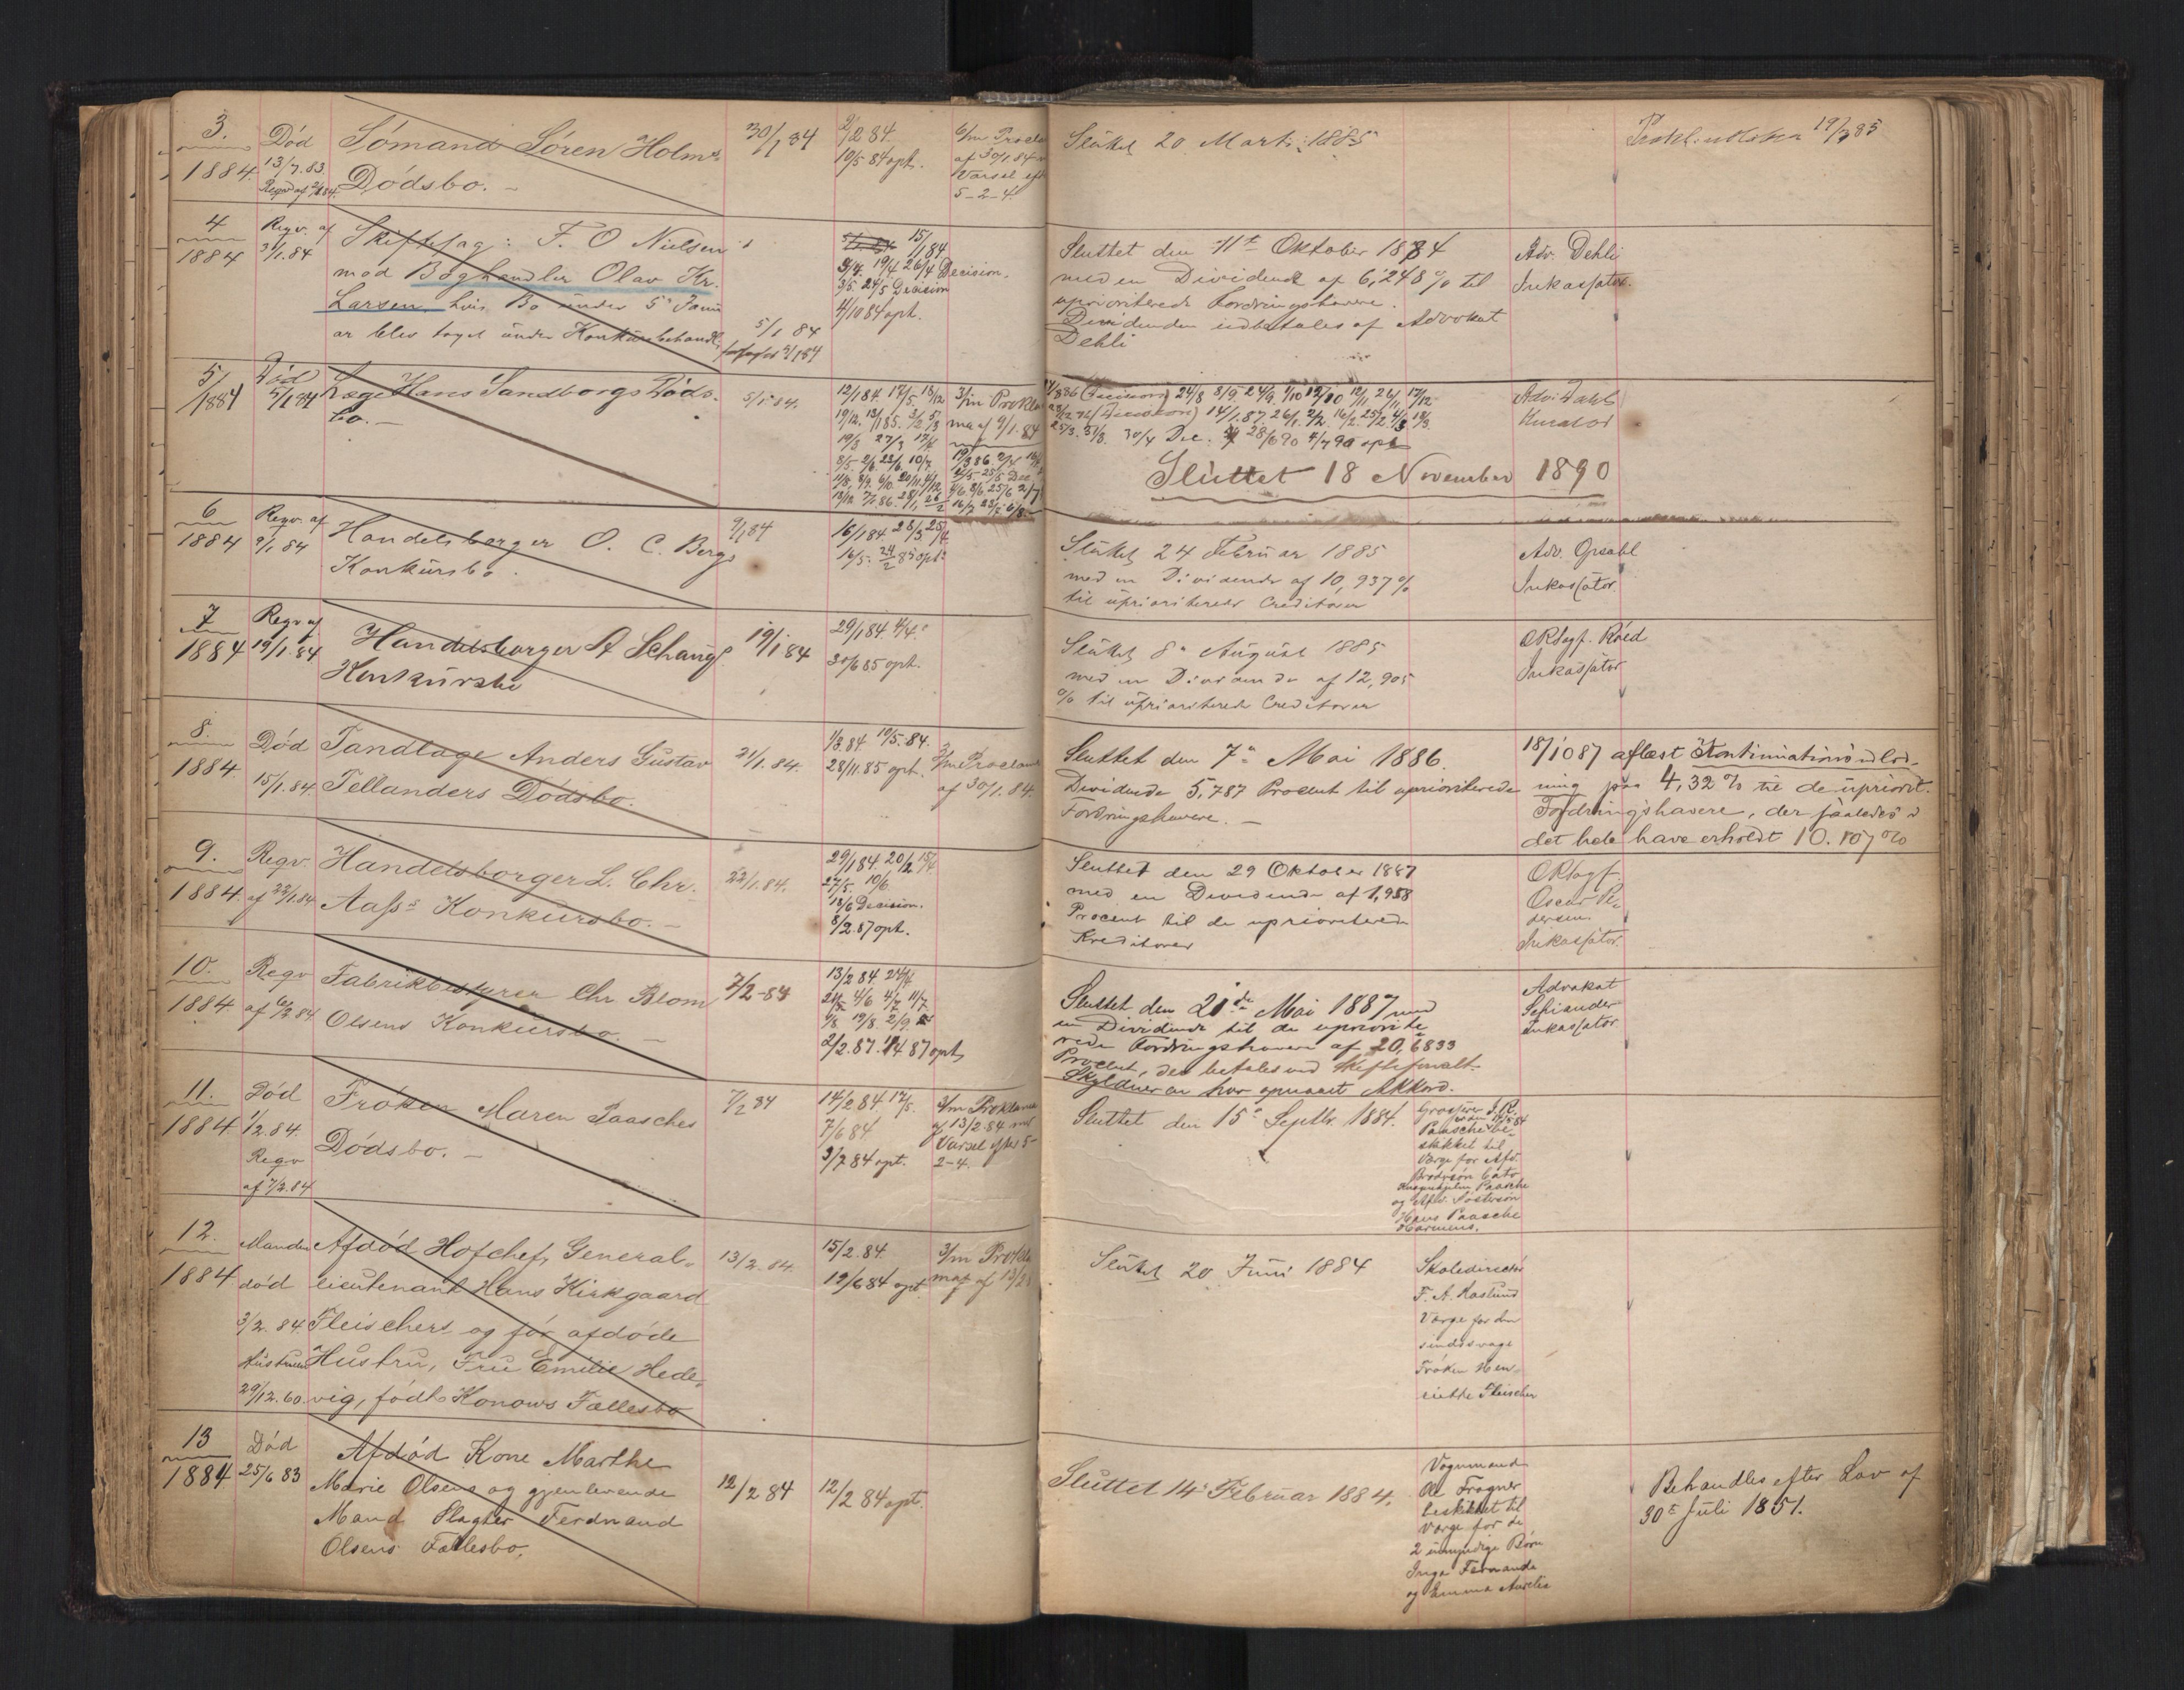 3.
1884.
Død
13/7.83.
Sømand Søren Holms
Dødsbo. —
30/1 84
2/2 84.
10/5 84 opt.
af 30/1.84
Varsel
5-2-4.
Sluttet 20 Marts 1885
19/3 85
4
1884
Reqv. af
3/1.84
Skiftesag: F. O Nielsen
mod Boghandler Olav Kr.
Larsen, hvis Bo under 5' Janu
ar blev taget under Konkursbehandl.
5/1 84
15/1 84.
19/4. 26/4 Decision.
3/5. 24/5 Decision
4/10 84 opt.
Sluttet den 11te Oktober 1884
med en Dividende af 6,248 % til
uprioriterede Fordringshavere.
Dividenden udbetales af Advokat
Dehli
Adv. Dehli
Inkassator.
5/
1884
Død
Læge Hans Sandborgs Døds-
bo. —
5/1.84.
12/1 84. 17/5. 13/12
3/m Prokla
ma af 9/1.84
28/6 90 opt
Sluttet 18 November 1890
Kurator
6
1884
Reqv. af
9/1 84
Handelsborger O. C. Bergs
Konkursbo.
9/1 84
16/1 84 28/3 25/4
16/5. 24/2 85 opt.
Sluttet 24 Februar 1885
med en Dividende af 10,937 %
til uprioriterede Creditorer
Adv. Opsahl
Inkassator.
7
1884
Reqv af
19/1.84
Handelsborger A Schaug's
Konkursbo
19/1 84
29/1 84 4/4.
30/6 85 opt.
Sluttet 8de August 1885
med en Dividende af 12,905
% til uprioriterede Creditorer
ORsagf. Roed
Inkassator
8.
1884
Død
15/1.84.
Tandlæge Anders Gustav
Tellanders Dødsbo.
21/1.84.
1/3.84. 19/5.84.
28/11.85 opt.
3/m Proclama
af 30/1.84.
Sluttet den 7de Mai 1886.
Dividende 5,787 Procent til uprioriterede
Fordringshavere. —
18/10 87 aflæst Kontinuationsudlod-
ning paa 4,32 % til de upriorit.
Fordringshavere, der saaledes i
det hele have erholdt 10.107 %
9.
1884.
Reqv.
af 22/1.84
Handelsborger L. Chr.
Aass's Konkursbo. —
22/1.84.
29/1 84 20/2 15/4
27/5. 10/6
13/6 Decision.
8/2.87 opt.
Sluttet den 29 Oktober 1887
med en Dividende af 1,958
Procent til de uprioriterede
Kreditorer
ORsagf.
Oscar Pe-
dersen
Inkassator.
10.
1884.
Reqv
af 6/2.84
Fabrikbestyrer Chr Blom
Olsens Konkursbo. —
7/2-84
13/2 84. 24/4
4/6 4/7 11/7
19/8. 2/9.
2/2.87. 87 opt,
Sluttet den 21de Mai 1887 med
en Dividende til de upriorite-
rede Fordringshavere af 20,6833
Procent, der betales ved Skifteforvalt.
Skyldneren har opnaaet Akkord.
Advokat
Schiander
Inkassator
11.
1884
Død
1/2.84.
Reqv
af 7/2.84
Frøken Maren Paasches
Dødsbo. —
7/2 84
14/2 84. 17/5.
7/6 84.
3/7 84 opt.
3/m Proklama
af 13/2.84 med
Varsel efter 5-
2-4.
Sluttet den 15de Septbr. 1884.
Grosserer J. R.
Paasche be-
skikket til
Værge for Afd.
Brodersøn Cato
Paasche
og Afdr. Søstersøn
Hans Paasche
Harmens.
12.
1884
Manden
død
3/2.84.
Hustruen
29/12.60.
Afdød Hofchef, General-
lieutenant Hans Kirkgaard
Fleischers og før afdøde
Hustru, Fru Emilie Hede-
vig, født Konows Fællesbo
13/2.84.
15/2.84.
19/6 84 opt
3/m Prokla
ma af 13/2
Sluttet 20 Juni 1884
Skoledirectør
F. A. Kaslund
Værge for den
sindssvage
Frøken Hen-
riette Fleischer
13
1884
Død
25/6 83
Afdød Kone Marthe
Marie Olsens og gjenlevende
Mand Slagter Ferdnand
Olsens Fællesbo.
12/2 84
12/2 84 opt.
Sluttet 14de Februar 1884.
Vognmand
Ole Frogner
beskikket til
Værge for de
2 umyndige Børn
Inga Fernanda
og Emma Aurelia
Behandles efter Lov af
30te Juli 1851.